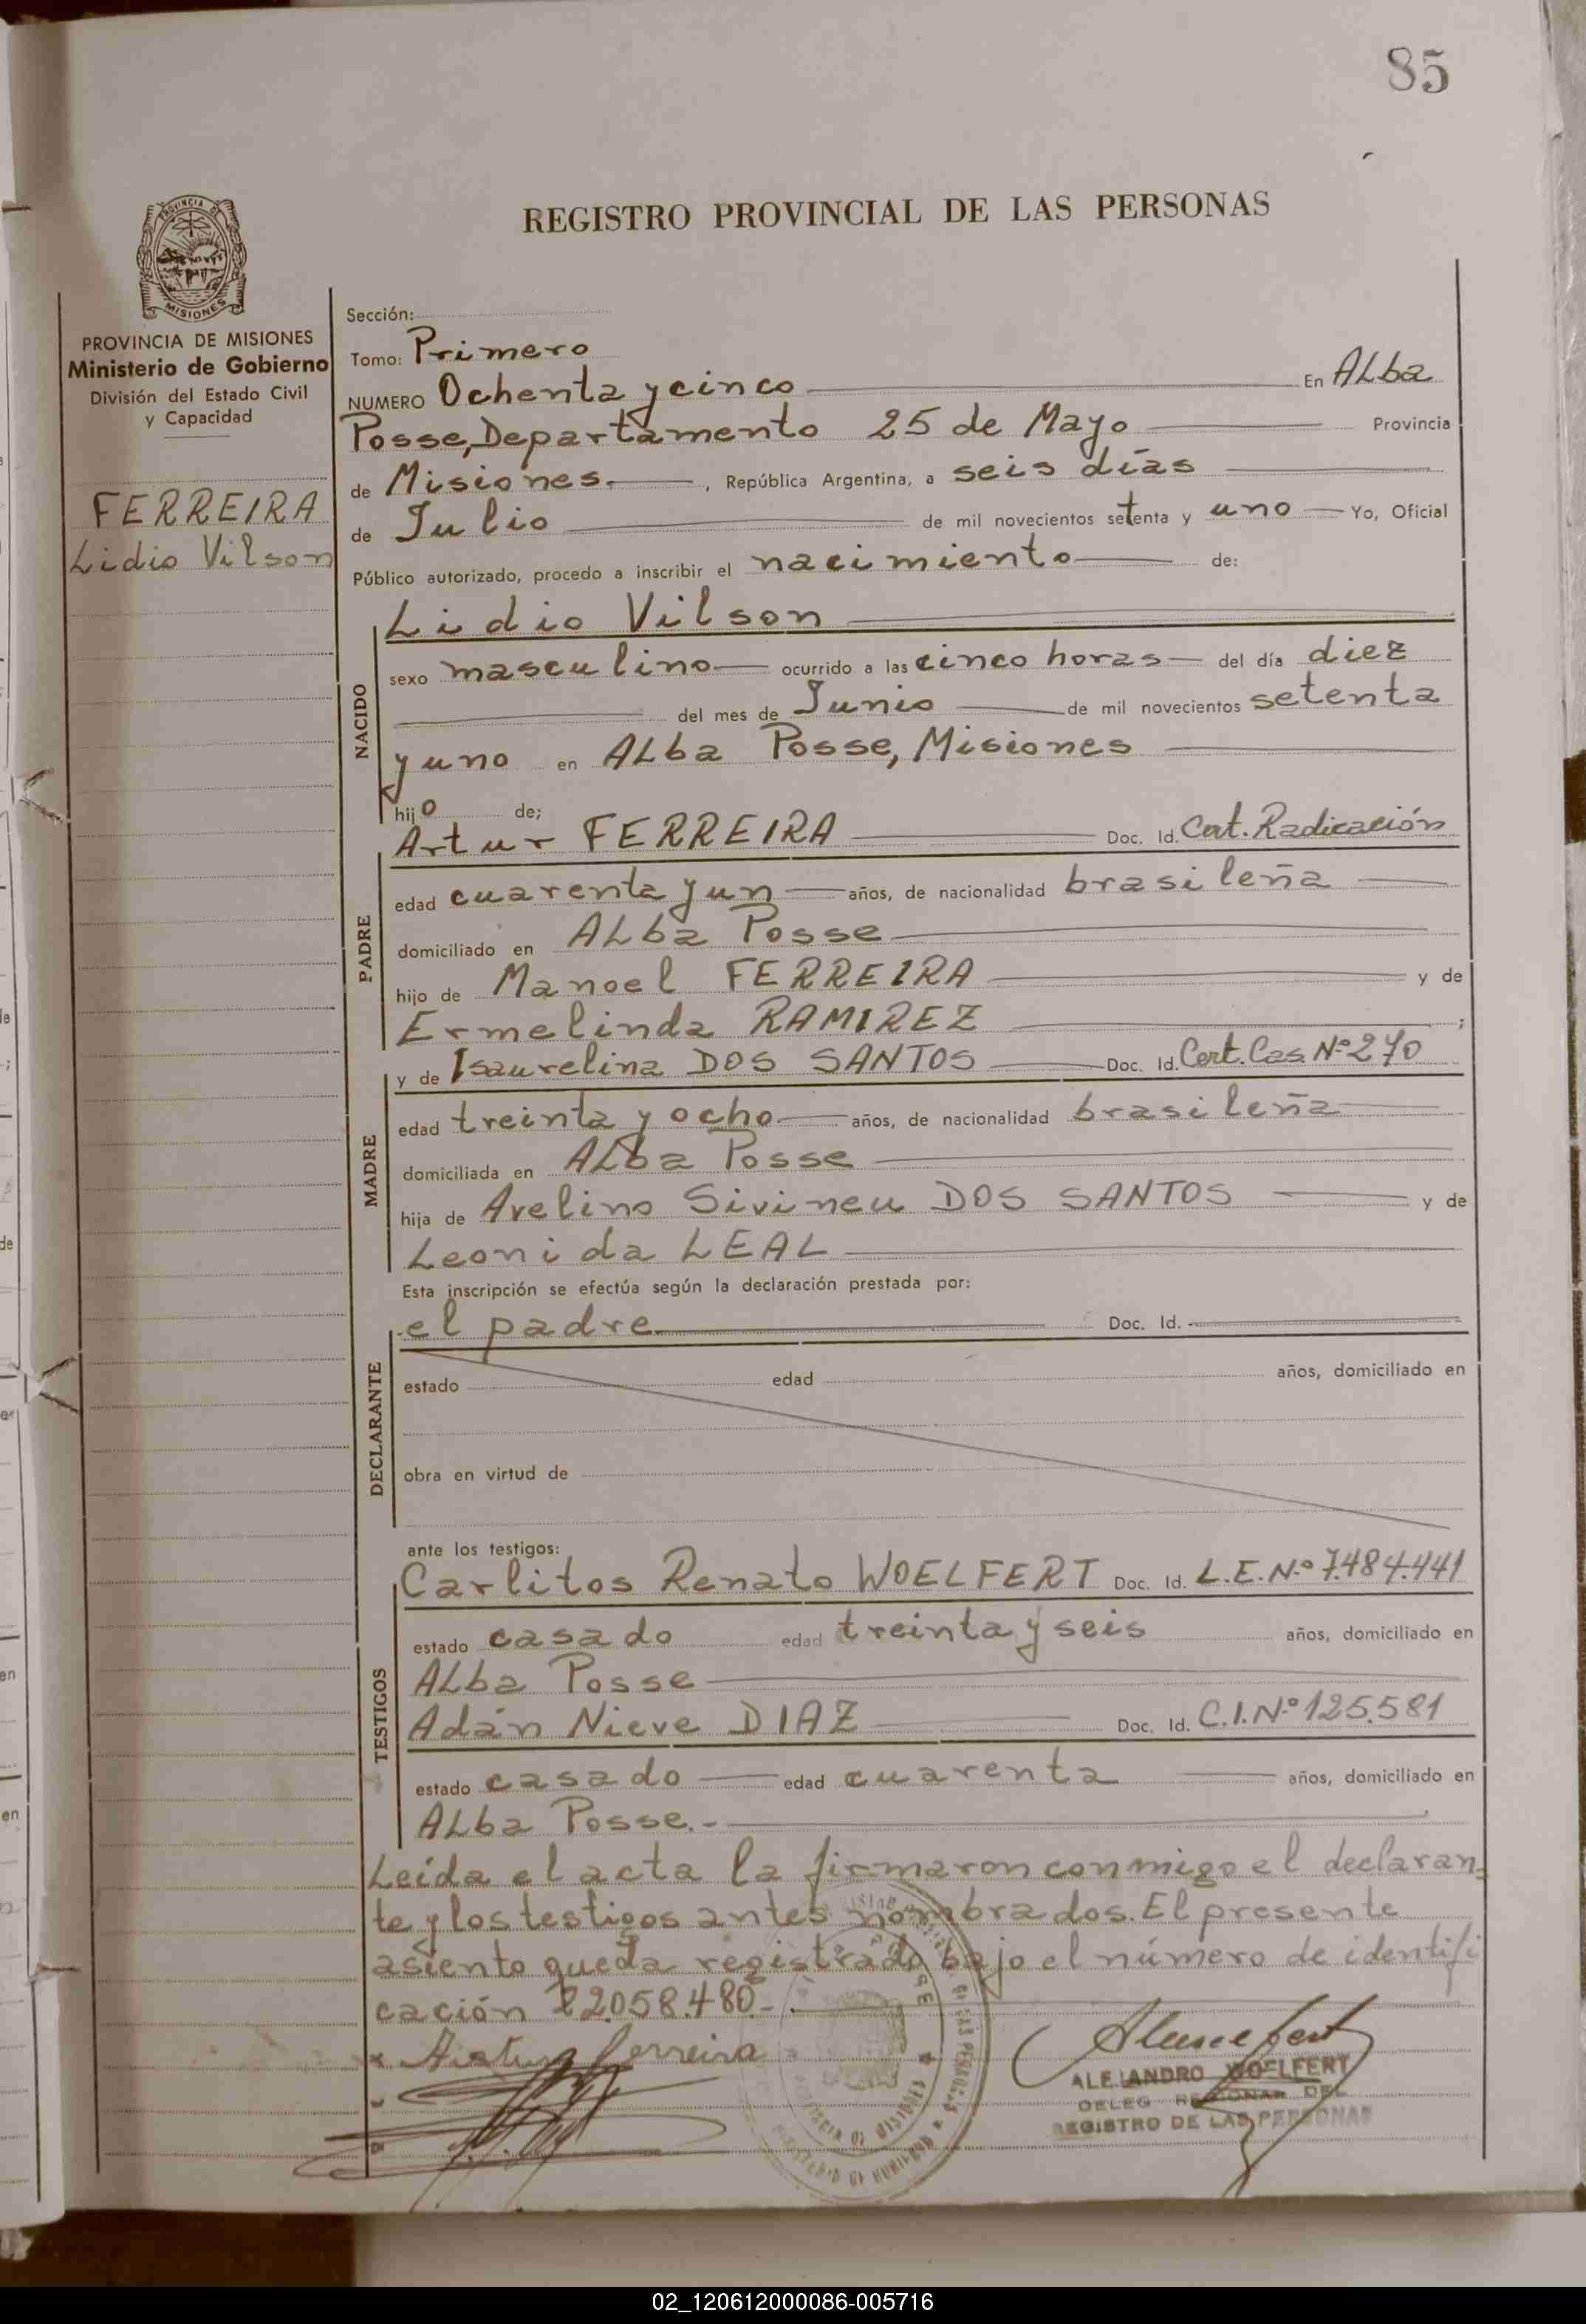 85
REGISTRO PROVINCIAL DE LAS PERSONAS
PROVINCIA DE
MISIONES
PROVINCIA DE MISIONES
Ministerio de Gobierno
División del Estado Civil
y Capacidad
FERREIRA
Lidio Vilson
Sección:
Tomo: Primero
NUMERO Ochenta y cinco En ALba
Posse, Departamento 25 de Mayo Provincia
de Misiones. , República Argentina, a seis días
de Julio de mil novecientos setenta y uno Yo, Oficial
Público autorizado, procedo a inscribir el nacimiento de:
Lidio Vilson
NACIDO
sexo masculino ocurrido a las cinco horas del día diez
del mes de Junio de mil novecientos setenta
y uno en ALba Posse, Misiones
hijo de;
Artur FERREIRA Doc. Id. Cert. Radicación
PADRE
edad cuarenta y un años, de nacionalidad brasileña
domiciliado en ALba Posse
hijo de Manoel FERREIRA y de
Ermelinda RAMIREZ ;
y de Isaurelina DOS SANTOS Doc. Id. Cert. Cas. Nº 270
MADRE
edad treinta y ocho años, de nacionalidad brasileña
domiciliada en ALba Posse
hija de Avelino Sivineu DOS SANTOS y de
Leonida LEAL
Esta inscripción se efectúa según la declaración prestada por:
el padre Doc. Id.
DECLARANTE
estado edad años, domiciliado en
obra en virtud de
ante los testigos:
Carlitos Renato WOELFERT Doc. Id. L.E.Nº 7.484.441
TESTIGOS
estado casado edad treinta y seis años, domiciliado en
ALba Posse
Adán Nieve DIAZ Doc. Id. C.I.Nº 125.581
estado casado edad cuarenta años, domiciliado en
ALba Posse.-
Leída el acta la firmaron conmigo el declaran-
te y los testigos antes nombrados. El presente
asiento queda registrado bajo el número de identifi
cación 22.058.480-.
Artur Ferreira
ALEJANDRO WOELFERT
DELEG REGIONAL DEL
REGISTRO DE LAS PERSONAS
02_120612000086-005716